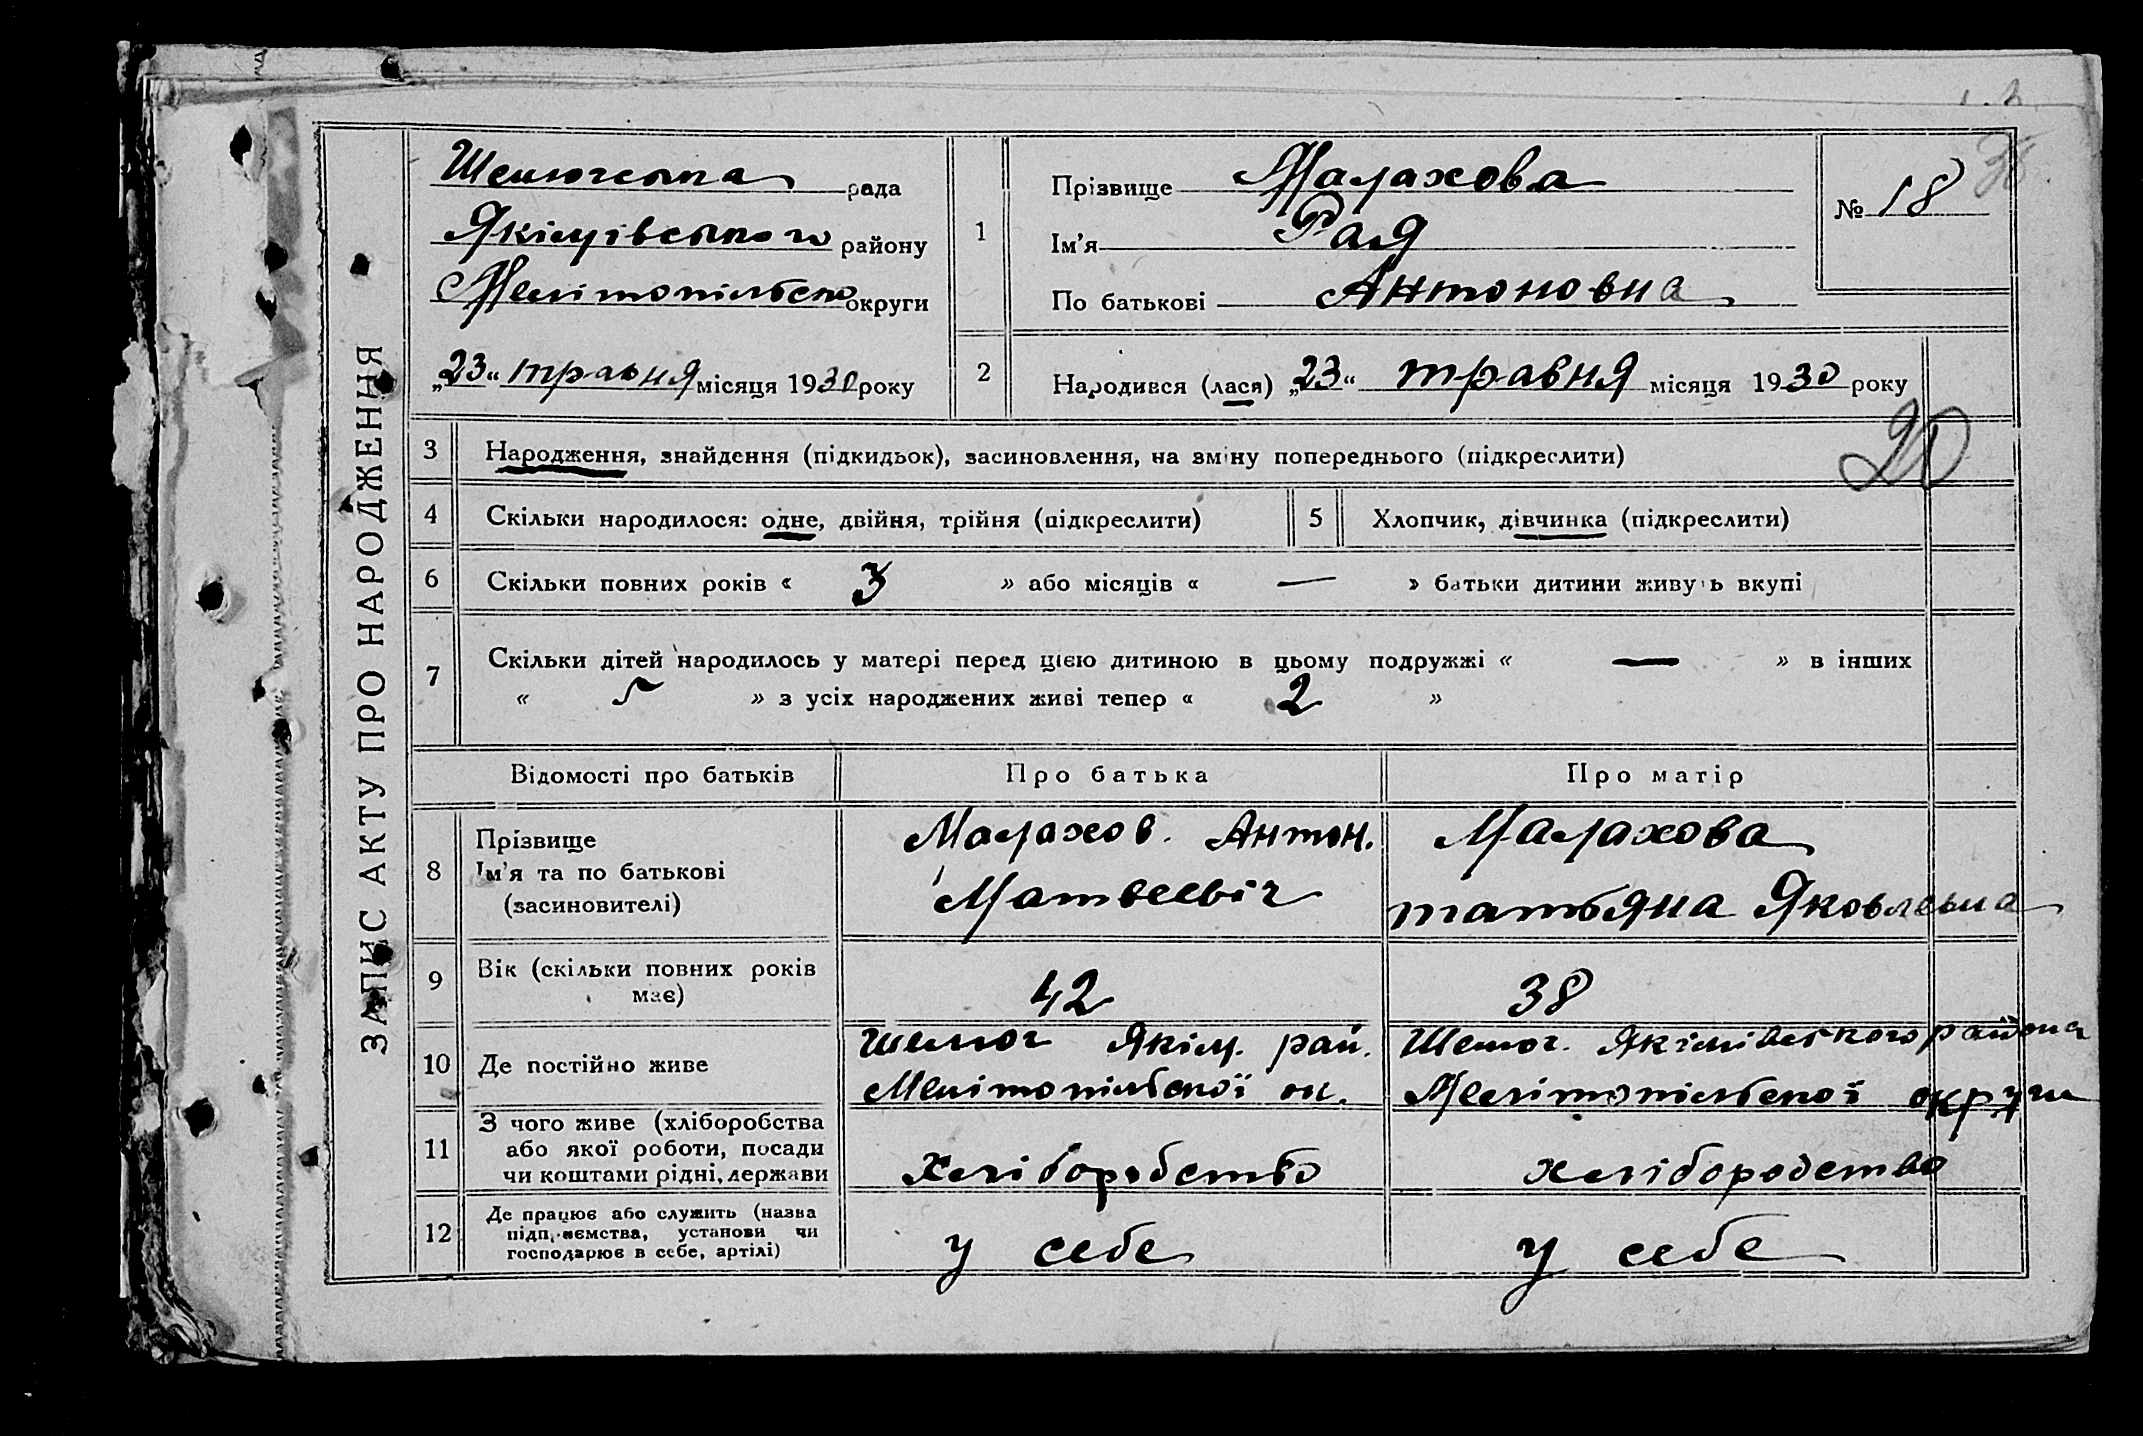 ЗАПИС АКТУ ПРО НАРОДЖЕННЯ
Шелюгська рада
Якімівського району
Мелітопільсько округи
„23“ травня місяця 1930 року
1
Прізвище Малахова
Ім'я Рая
По батькові Антоновна
№ 18
2
Народився (лася) „23“ травня місяця 1930 року
20
3 Народження, знайдення (підкидьок), засиновлення, на зміну попереднього (підкреслити)
4 Скільки народилося: одне, двійня, трійня (підкреслити)
5 Хлопчик, дівчинка (підкреслити)
6 Скільки повних років « 3 » або місяців « — » батьки дитини живуть вкупі
7 Скільки дітей народилось у матері перед цією дитиною в цьому подружжі « — » в інших
« 5 » з усіх народжених живі тепер « 2 »
Відомості про батьків Про батька Про матір
8 Прізвище
Ім'я та по батькові
(засиновителі)
Малахов. Антон.
Матвеевіч
Малахова
татьяна Яковлевна
9 Вік (скільки повних років
має)
42
38
10 Де постійно живе
Шелюг Якім. рай.
Мелітопільської ок.
Шелюг. Якімівского района
Мелітопільскої округи
11 З чого живе (хліборобства
або якої роботи, посади
чи коштами рідні, держави
Хліборобство
хліборобство
12 Де працює або служить (назва
підприємства, установи чи
господарює в себе, артілі)
у себе
у себе